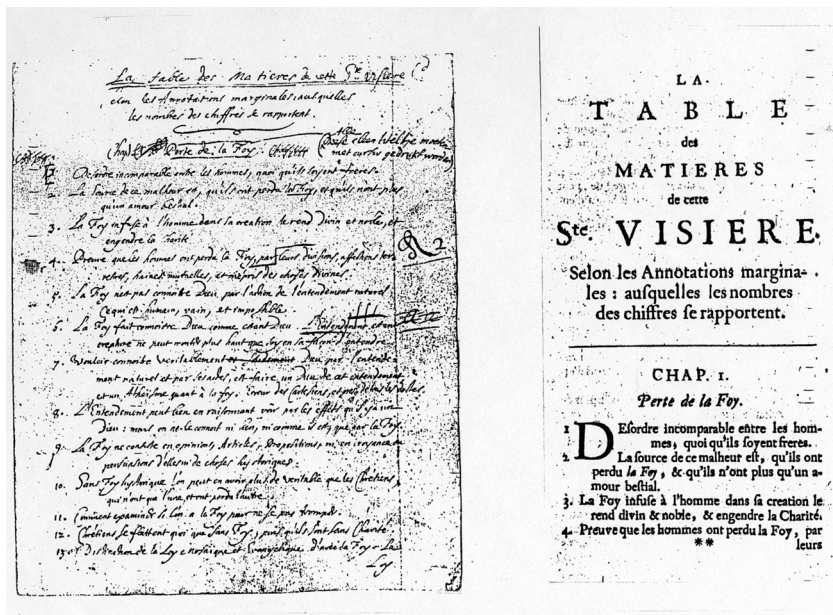 La Table des Matieres de cette Ste. Visiere
selon les Annotations marginales, ausquelles
les nombres des chiffres se rapportent.
Chap. Perte de la Foy.
Desordre incomparable entre les hommes, quoi qu'ils soyent freres.
2. La source de ce malheur est, qu'ils ont perdu la Foy, et qu'ils n'ont plus
qu'un amour bestial.
3. La Foy infuse à l'homme dans sa creation le rend divin et noble, et
engendre la Charité
4. Preuve que les hommes ont perdu la Foy, par leurs divisions, affections ter
restres, haines mutuelles, et mépris des choses divines.
5. La Foy n'est pas connoitre Dieu par l'action de l'entendement naturel
Ce qui est humain, vain, et impossible.
6. La Foy fait connoitre Dieu comme étant Dieu
creature ne peut monter plus haut que soy en sa façon d'entendre
7. Vouloir connoitre veritablement Dieu par l'entende
ment naturel et par ses actes, est faire un Dieu de cet entendement
et un Atheisme quant à la foy. Erreur des Cartesiens,
8. L'Entendement peut bien en raisonnant voir par les effets qu'il y a un
Dieu : mais on ne le connoit ni bien, ni comme il est, que par la Foy.
9. La Foy ne consiste en opinions, Articles, Propositions, ni en croyance ou
persuasions d'elles ni de choses historiques.
10. Sans Foy historique l'on peut en avoir plus de veritable que les Chrétiens,
qui n'ont que l'une, et ont perdu l'autre.
11. Comment examiner la Foy pour ne se pas tromper.
12. Chrétiens se flattent quoi que sans Foy, puis qu'ils sont sans Charité.
13. Distinction de la Loy Mosaïque et Evangelique d'avec la Foy. La
Loy
2
LA
TABLE
des
MATIERES
de cette
Ste. VISIERE.
Selon les Annotations margina-
les : ausquelles les nombres
des chiffres se rapportent.
CHAP. I.
Perte de la Foy.
1 DEsordre incomparable entre les hom-
mes, quoi qu'ils soyent freres.
2. La source de ce malheur est, qu'ils ont
perdu la Foy, & qu'ils n'ont plus qu'un a-
mour bestial.
3. La Foy infuse à l'homme dans sa creation le
rend divin & noble, & engendre la Charité.
4. Preuve que les hommes ont perdu la Foy, par
** leurs